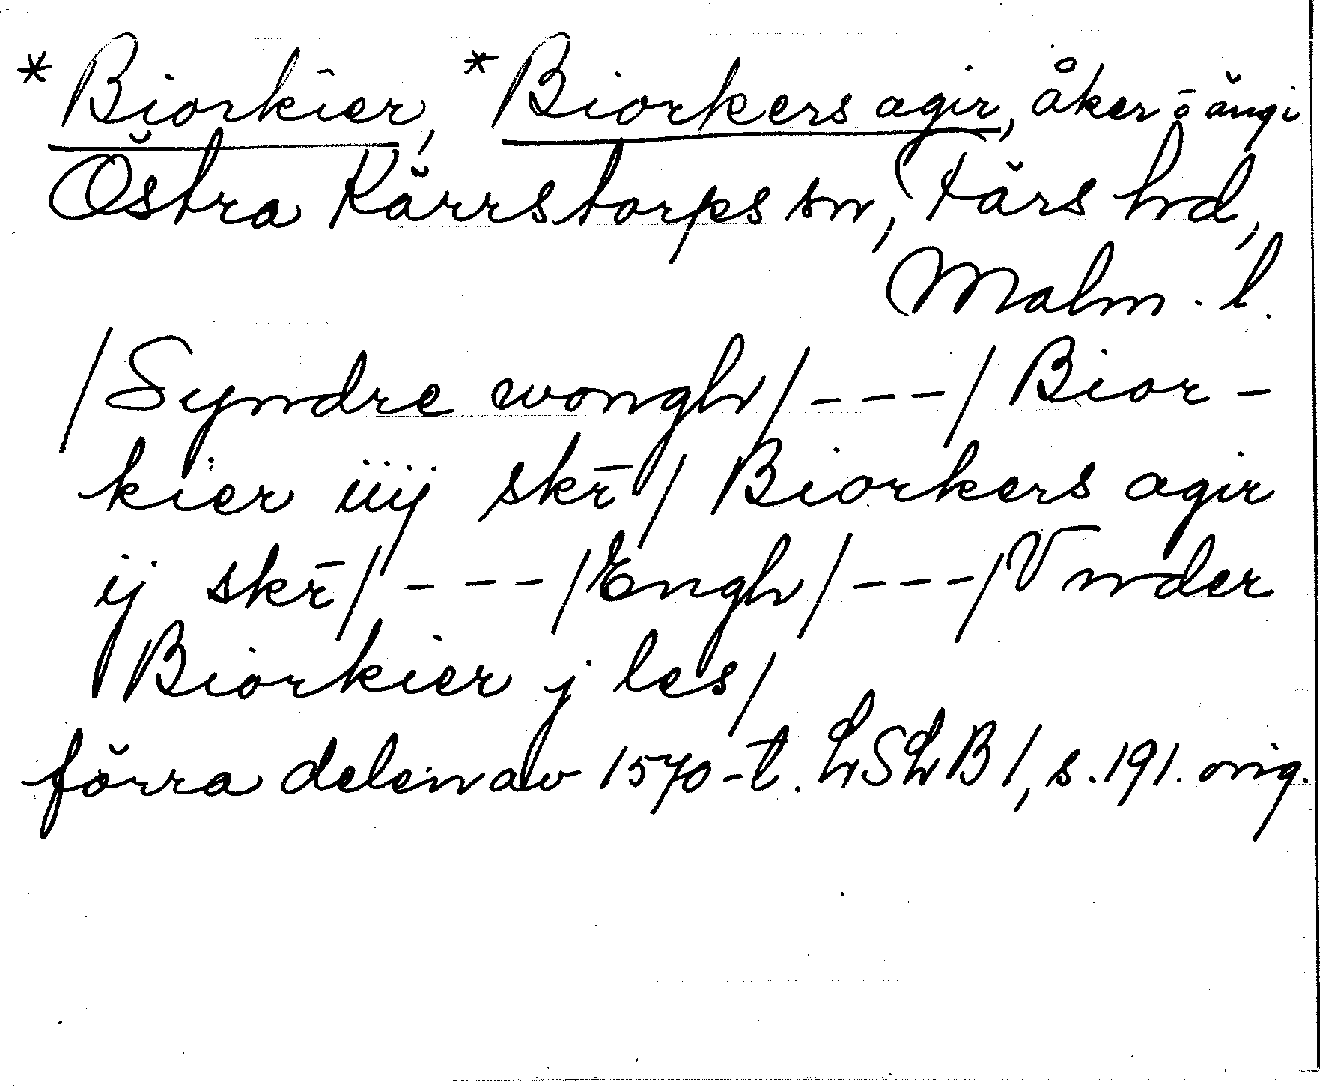 *Biorkier, *Biorkers agir, åker o ängi
Östra Kärrstorps sn, Färs hd,
Malm. l.
/Syndre wongh/ --- / Bior-
kier iiij skr̄ / Biorkers agir
ij skr̄ / --- / Engh / --- / Vnder
Biorkier j les /
förra delen av 1570-t. LSLB 1, s. 191. orig.